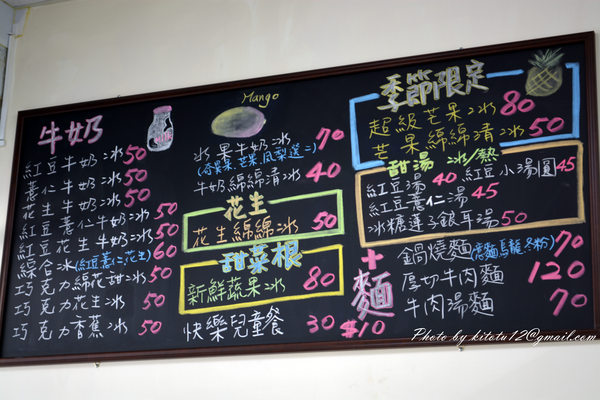 牛奶
紅豆牛奶冰 50
薏仁牛奶冰 50
花生牛奶冰 50
紅豆薏仁牛奶冰 50
紅豆花生牛奶冰 50
綜合冰(紅豆薏仁花生) 60
巧克力綿花甜冰 50
巧克力花生冰 50
巧克力香蕉冰 50
Mango
水果牛奶冰 70
牛奶綿綿清冰 40
花生
花生綿綿冰 50
甜菜根
新鮮蔬果冰 80
快樂兒童餐 30
季節限定
超級芒果冰 80
芒果綿綿清冰 50
甜湯 冰/熱
紅豆湯 40 紅豆小湯圓 45
紅豆薏仁湯 45
冰糖蓮子銀耳湯 50
+麵 $10
鍋燒麵 70
厚切牛肉麵 120
牛肉湯麵 70
Photo by kitotu12@gmail.com